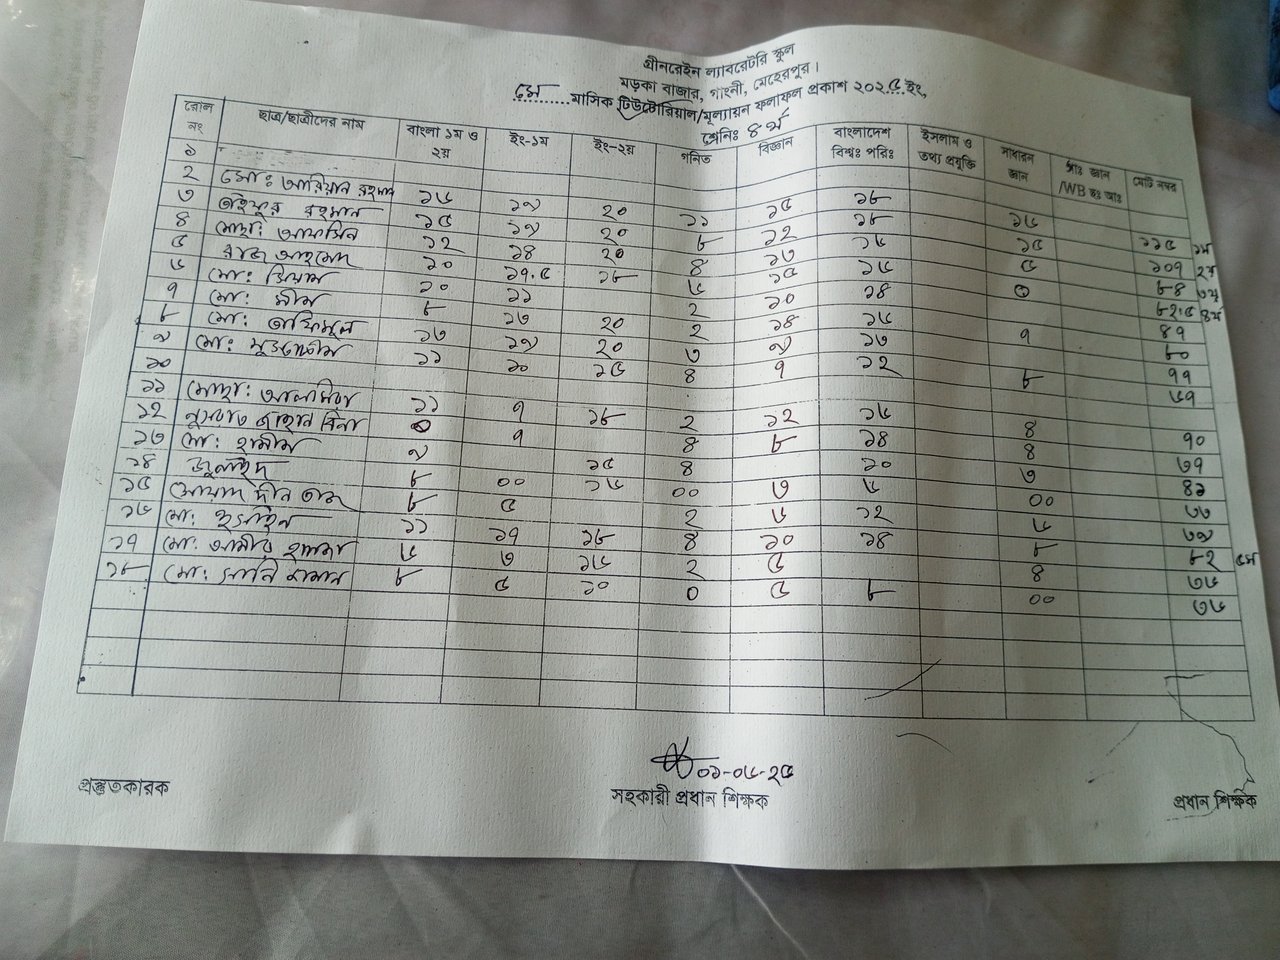 গ্রীনরেইন ল্যাবরেটরি স্কুল
মড়কা বাজার, গাংনী, মেহেরপুর।
মে......মাসিক টিউটোরিয়াল/মূল্যায়ন ফলাফল প্রকাশ ২০২৫ ইং
শ্রেনিঃ ৪র্থ
রোল নং ছাত্র/ছাত্রীদের নাম বাংলা ১ম ও ২য় ইং-১ম ইং-২য় গনিত বিজ্ঞান বাংলাদেশ বিশ্বঃ পরিঃ ইসলাম ও তথ্য প্রযুক্তি সাধারন জ্ঞান /WB মোট নম্বর
১
২ মোঃ আরিয়ান রহমান ১৬ ১৯ ২০ ১১ ১৫ ১৮ ১৬ ১১৫ ১ম
৩ রহমান ১৫ ১৯ ২০ ৮ ১২ ১৮ ১৫ ১০৭ ২য়
৪ মোছাঃ আফসিন ১২ ১৪ ২০ ৪ ১৩ ১৬ ৫ ৮৪ ৩য়
৫ রাজ আহমেদ ১০ ১৭.৫ ১৮ ৬ ১৫ ১৬ ০ ৮২.৫ ৪র্থ
৬ মোঃ সিয়াম ১০ ১১ ২ ১০ ১৪ ৪৭
৭ মোঃ ৮ ১৩ ২০ ২ ১৪ ১৬ ৭ ৮০
৮ মোঃ ১৩ ১৯ ২০ ৩ ৯ ১৩ ৭৭
৯ মোঃ ১১ ১০ ১৫ ৪ ৭ ১২ ৮ ৬৭
১০
১১ মোছাঃ ১১ ৭ ১৮ ২ ১২ ১৬ ৪ ৭০
১২ নুসরাত জাহান ০ ৭ ৪ ৮ ১৪ ৪ ৩৭
১৩ মোঃ হামীম ৯ ১৫ ৪ ১০ ৩ ৪১
১৪ জুনাইদ ৮ ০০ ১৬ ০০ ৩ ৬ ০০ ৩৩
১৫ ৮ ৫ ২ ৬ ১২ ৬ ৩৯
১৬ মোঃ ১১ ১৭ ১৮ ৪ ১০ ১৪ ৮ ৮২ ৫ম
১৭ মোঃ আমীর হামজা ৬ ৩ ১৬ ২ ৫ ৪ ৩৬
১৮ মোঃ ৮ ৫ ১০ ০ ৫ ৮ ০০ ৩৬
০১-০৬-২৫
প্রস্তুতকারক সহকারী প্রধান শিক্ষক প্রধান শিক্ষক